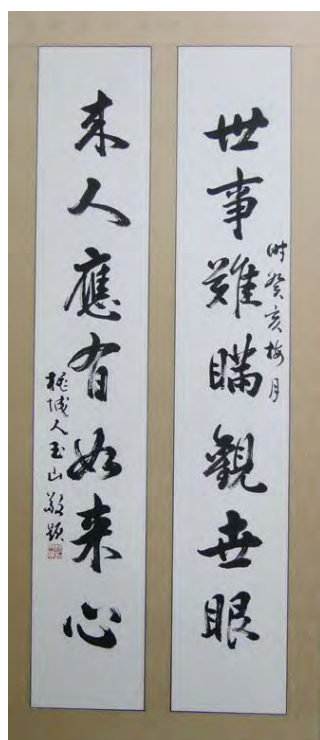 世事難瞞觀世眼
时癸亥梅月
来人應有如来心
城人玉山敬題